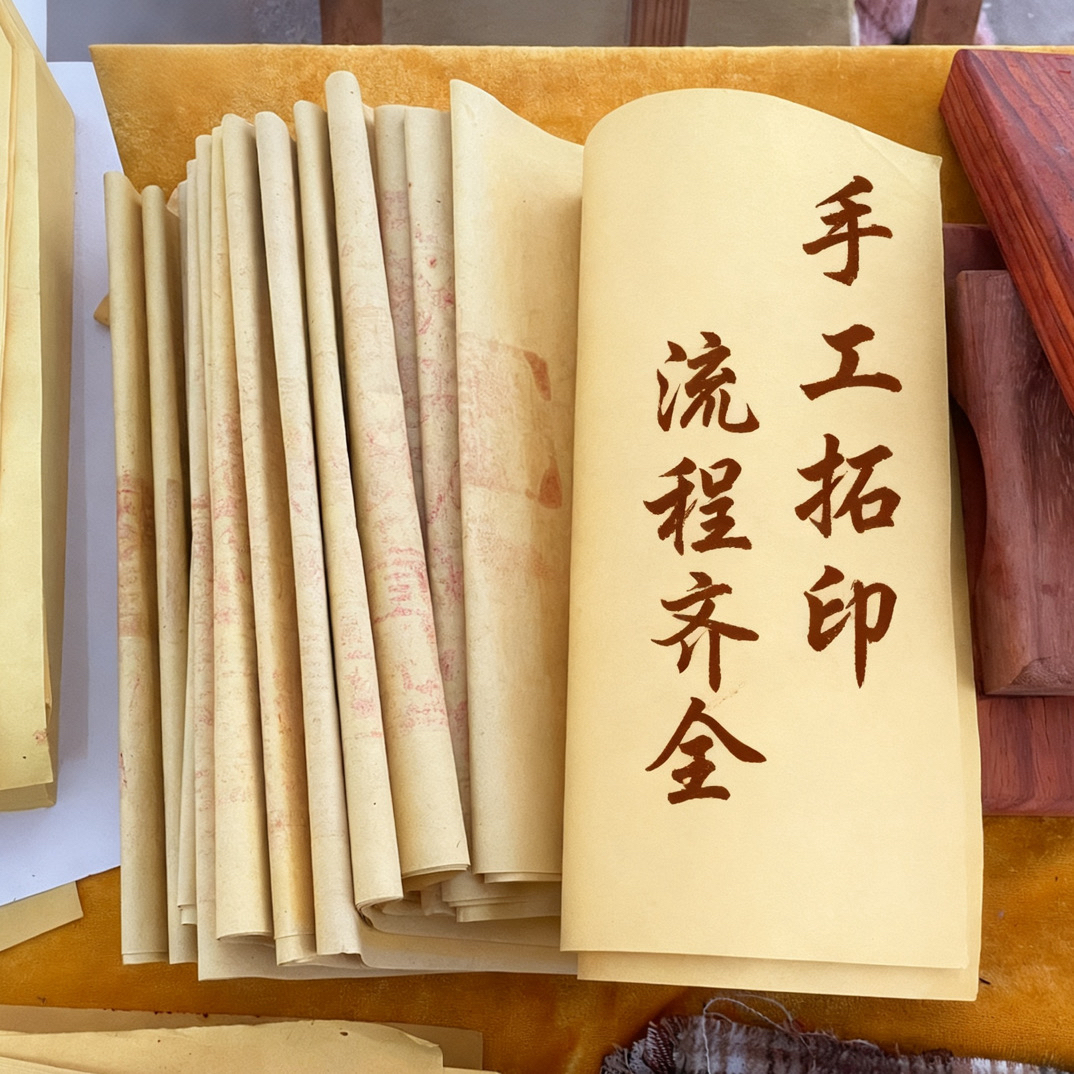 手工拓印
流程齐全